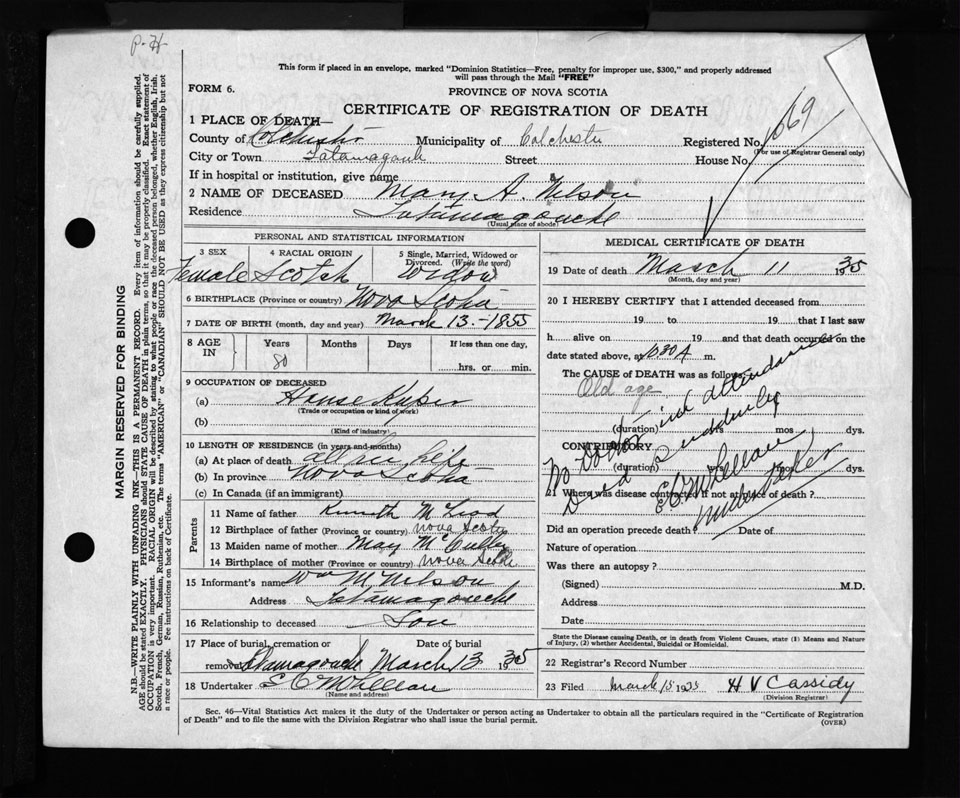 P-H
This form if placed in an envelope, marked "Dominion Statistics—Free, penalty for improper use, $300," and properly addressed
will pass through the Mail "FREE"
FORM 6.
PROVINCE OF NOVA SCOTIA
CERTIFICATE OF REGISTRATION OF DEATH
1 PLACE OF DEATH—
County of Colchester Municipality of Colchester Registered No. 1069
(For use of Registrar General only)
City or Town Tatamagouch Street House No.
If in hospital or institution, give name
2 NAME OF DECEASED Mary A. Nelson
Residence Tatamagouche
(Usual place of abode)
PERSONAL AND STATISTICAL INFORMATION
3 SEX 4 RACIAL ORIGIN 5 Single, Married, Widowed or
Divorced. (Write the word)
Female Scotch Widow
6 BIRTHPLACE (Province or country) Nova Scotia
7 DATE OF BIRTH (month, day and year) March 13-1855
8 AGE IN Years Months Days If less than one day,
80 hrs. or min.
9 OCCUPATION OF DECEASED
(a) House Keeper
(Trade or occupation or kind of work)
(b)
(Kind of industry)
10 LENGTH OF RESIDENCE (in years and months)
(a) At place of death all her life
(b) In province Nova Scotia
(c) In Canada (if an immigrant)
Parents
11 Name of father Kenneth McLeod
12 Birthplace of father (Province or country) Nova Scotia
13 Maiden name of mother May
14 Birthplace of mother (Province or country) Nova Scotia
15 Informant's name Wm M Nelson
Address Tatamagouche
16 Relationship to deceased Son
17 Place of burial, cremation or Date of burial
removal Tatamagouche March 13 1935
18 Undertaker
(Name and address)
MEDICAL CERTIFICATE OF DEATH
19 Date of death March 11 1935
(Month, day and year)
20 I HEREBY CERTIFY that I attended deceased from
19 to 19 that I last saw
h alive on 19 and that death occurred on the
date stated above, at 10 30 A m.
The CAUSE of DEATH was as follows
Old age
(duration) yrs mos dys.
CONTRIBUTORY
(duration) yrs mos dys.
No Doctor in attendance
Died suddenly
undertaker
21 Where was disease contracted if not at place of death ?
Did an operation precede death Date of
Nature of operation
Was there an autopsy ?
(Signed) M.D.
Address
Date
State the Disease causing Death, or in death from Violent Causes, state (1) Means and Nature
of Injury, (2) whether Accidental, Suicidal or Homicidal.
22 Registrar's Record Number
23 Filed March 15 1935 H V Cassidy
(Division Registrar)
Sec. 46—Vital Statistics Act makes it the duty of the Undertaker or person acting as Undertaker to obtain all the particulars required in the "Certificate of Registration
of Death" and to file the same with the Division Registrar who shall issue the burial permit.
(OVER)
MARGIN RESERVED FOR BINDING
N.B.—WRITE PLAINLY WITH UNFADING INK—THIS IS A PERMANENT RECORD. Every item of information should be carefully supplied.
AGE should be stated EXACTLY. PHYSICIANS should state CAUSE OF DEATH in plain terms, so that it may be properly classified. Exact statement of
OCCUPATION is very important. RACIAL ORIGIN will be described by stating to what people or race the deceased person belonged, whether English, Irish,
Scotch, French, German, Russian, Ruthenian, etc. The terms "AMERICAN" or "CANADIAN" SHOULD NOT BE USED as they express citizenship but not
a race or people. Fee instructions on back of Certificate.